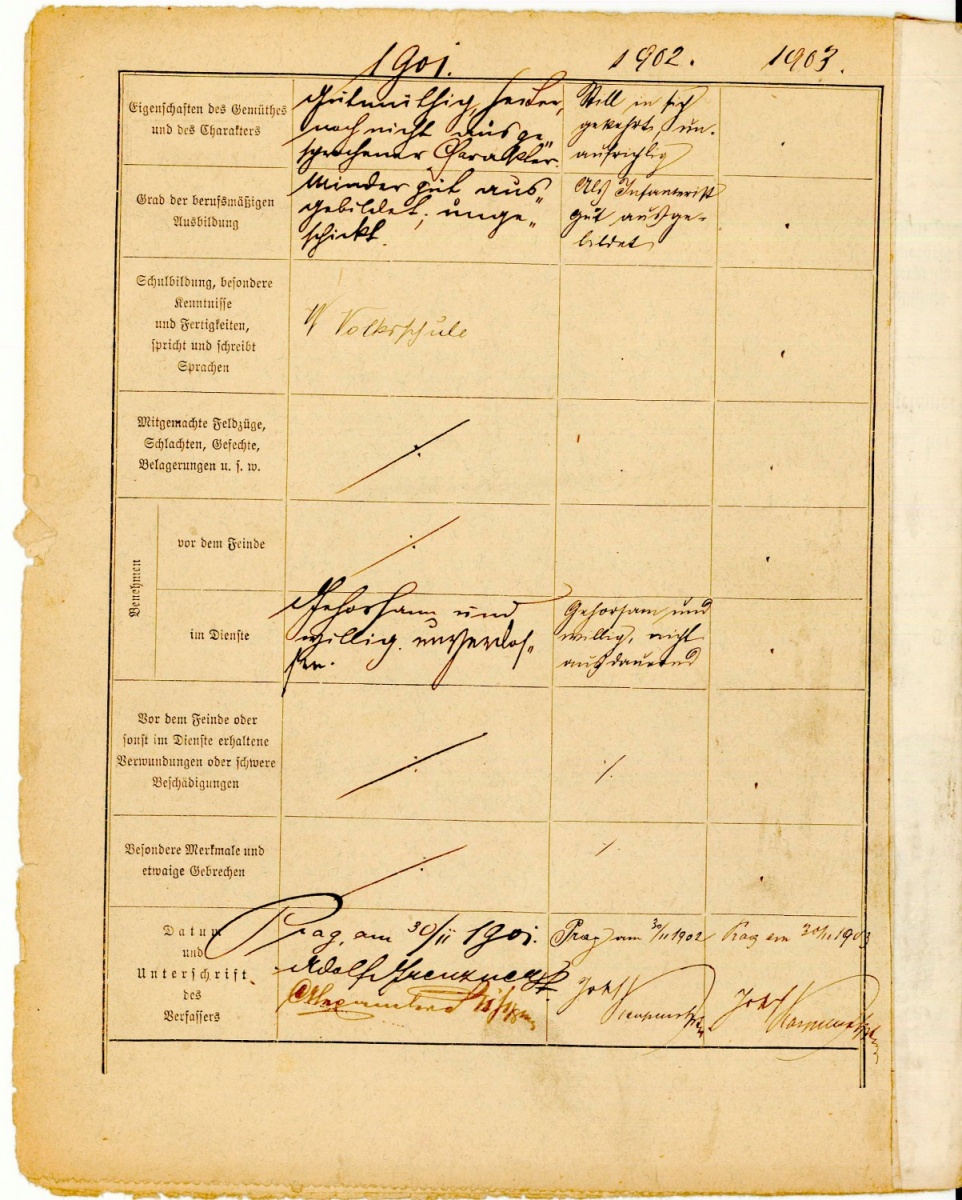 1901. 1902. 1903.
Eigenschaften des Gemüthes
und des Charakters
Gutmüthig, heiter,
noch nicht ausge-
sprochener Charakter
Still in sich
gekehrt, un-
aufrichtig
Grad der berufsmäßigen
Ausbildung
Minder gut aus-
gebildet; unge-
schickt.
Als Infanterist
gut ausge-
bildet
Schulbildung, besondere
Kenntnisse
und Fertigkeiten,
spricht und schreibt
Sprachen
Volksschule
Mitgemachte Feldzüge,
Schlachten, Gefechte,
Belagerungen u. s. w.
Benehmen
vor dem Feinde
im Dienste
Gehorsam und
willig. unverdos-
sen.
Gehorsam und
willig, nicht
ausdauernd
Vor dem Feinde oder
sonst im Dienste erhaltene
Verwundungen oder schwere
Beschädigungen
Besondere Merkmale und
etwaige Gebrechen
Datum
und
Unterschrift
des
Verfassers
Prag, am 30/11 1901.
Adolf
Prag am 30/11 1902
Josef
Prag am 30/11 1903
Josef